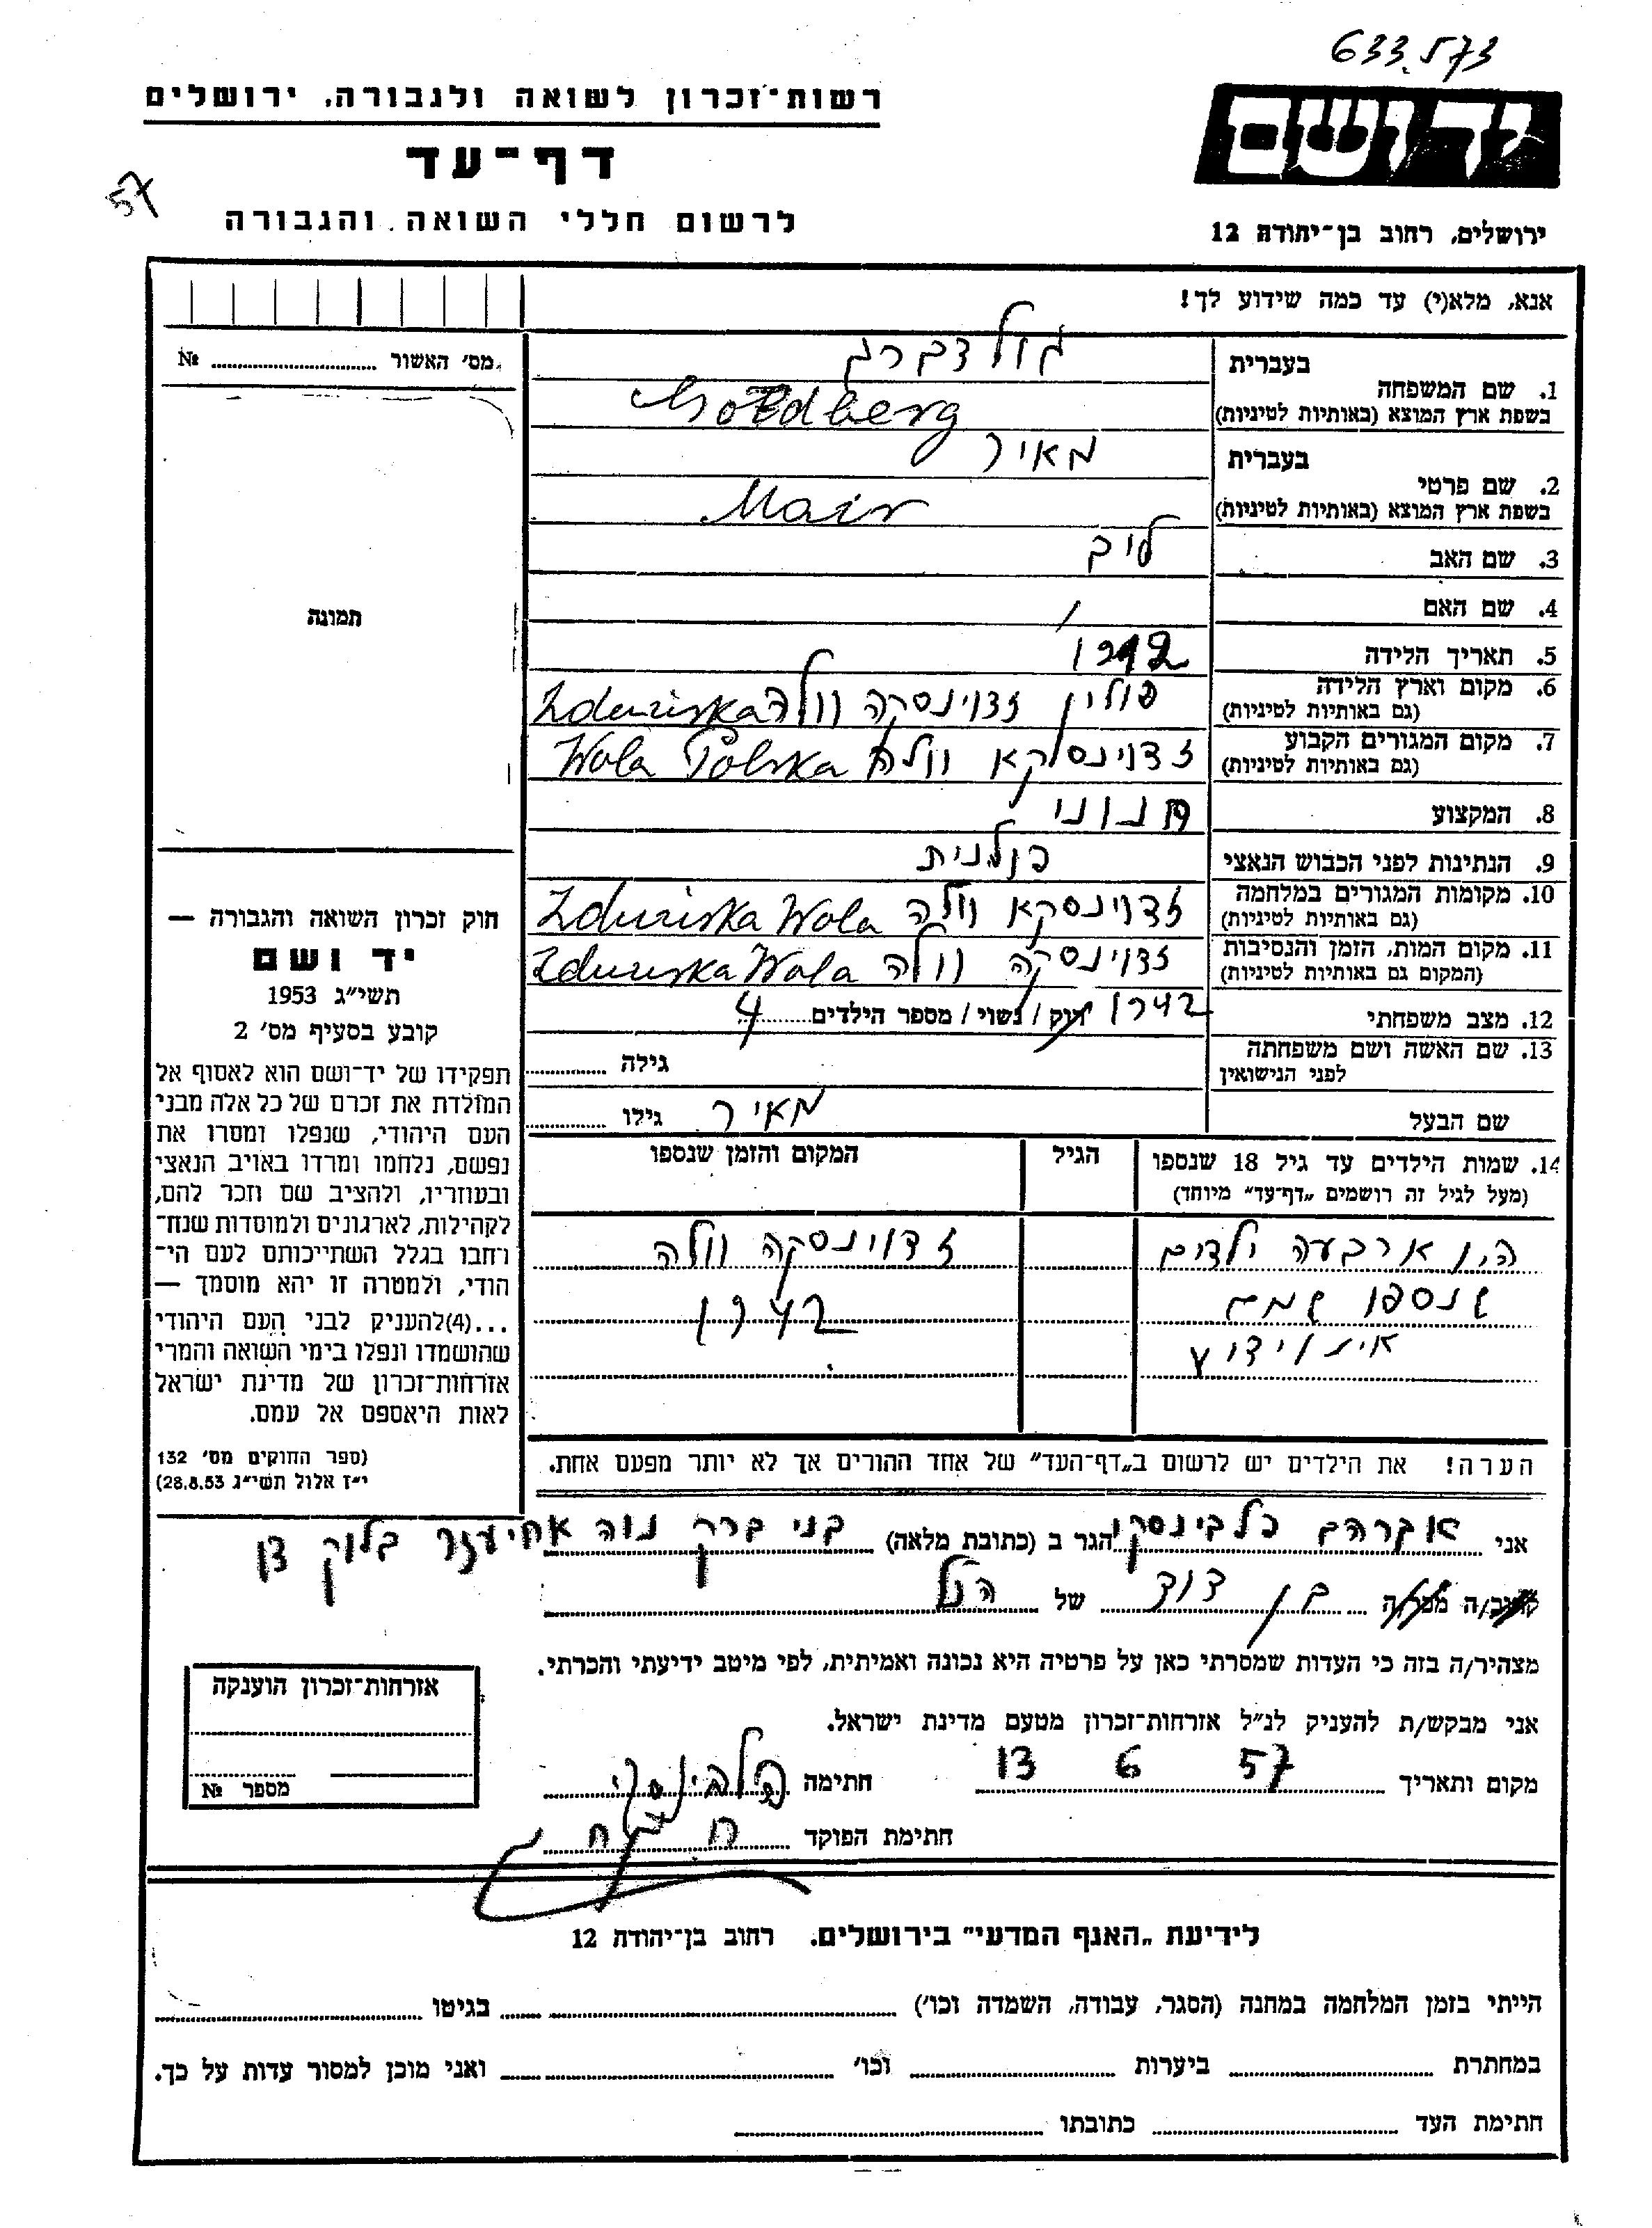 633.573
רשות־זכרון לשואה ולגבורה, ירושלים
יד ושם
דף־עד
57
לרשום חללי השואה והגבורה
ירושלים, רחוב בן־יהודה 12
אנא, מלא(י) עד כמה שידוע לך!
מס׳ האשור № ....................
בעברית גולדברג
1. שם המשפחה
בשפת ארץ המוצא (באותיות לטיניות) Goldberg
בעברית מאיר
2. שם פרטי
בשפת ארץ המוצא (באותיות לטיניות) Mair
3. שם האב לוב
4. שם האם /
5. תאריך הלידה
6. מקום וארץ הלידה
(גם באותיות לטיניות) פולין זדוינסקה וולה Zduńska
7. מקום המגורים הקבוע
(גם באותיות לטיניות) זדוינסקא וולה Wola Polska
8. המקצוע חנוני
9. הנתינות לפני הכבוש הנאצי פולנית
10. מקומות המגורים במלחמה
(גם באותיות לטיניות) זדוינסקא וולה Zduńska Wola
11. מקום המות, הזמן והנסיבות
(המקום גם באותיות לטיניות) זדוינסקה וולה Zduńska Wola
1942
12. מצב משפחתי רוק / נשוי / מספר הילדים 4
13. שם האשה ושם משפחתה
לפני הנישואין גילה ............
שם הבעל מאיר גילו ............
תמונה
חוק זכרון השואה והגבורה —
יד ושם
תשי״ג 1953
קובע בסעיף מס׳ 2
תפקידו של יד־ושם הוא לאסוף אל
המולדת את זכרם של כל אלה מבני
העם היהודי, שנפלו ומסרו את
נפשם, נלחמו ומרדו באויב הנאצי
ובעוזריו, ולהציב שם וזכר להם,
לקהילות, לארגונים ולמוסדות שנח־
רחבו בגלל השתייכותם לעם הי־
הודי, ולמטרה זו יהא מוסמך —
...(4)להעניק לבני העם היהודי
שהושמדו ונפלו בימי השואה והמרי
אזרחות־זכרון של מדינת ישראל
לאות היאספם אל עמם.
(ספר החוקים מס׳ 132
י״ז אלול תשי״ג 28.8.53)
14. שמות הילדים עד גיל 18 שנספו הגיל המקום והזמן שנספו
(מעל לגיל זה רושמים „דף־עד״ מיוחד)
היו ארבעה ילדים זדוינסקה וולה
שנספו שמם 1942
אינו ידוע
הערה! את הילדים יש לרשום ב„דף־העד״ של אחד ההורים אך לא יותר מפעם אחת.
אני אברהם כלבינסקי הגר ב (כתובת מלאה) בני ברק נוה אחיעזר בלוק 3ן
קרוב/ה מכר/ה בן דוד של הנ״ל
מצהיר/ה בזה כי העדות שמסרתי כאן על פרטיה היא נכונה ואמיתית, לפי מיטב ידיעתי והכרתי.
אני מבקש/ת להעניק לנ״ל אזרחות־זכרון מטעם מדינת ישראל.
מקום ותאריך 13 6 57 חתימה כלבינסקי
חתימת הפוקד
אזרחות־זכרון הוענקה
מספר №
לידיעת „האגף המדעי״ בירושלים. רחוב בן־יהודה 12
הייתי בזמן המלחמה במחנה (הסגר, עבודה, השמדה וכו׳) .................... בגיטו ....................
במחתרת .................... ביערות .................... וכו׳ .................... ואני מוכן למסור עדות על כך.
חתימת העד .................... כתובתו ....................